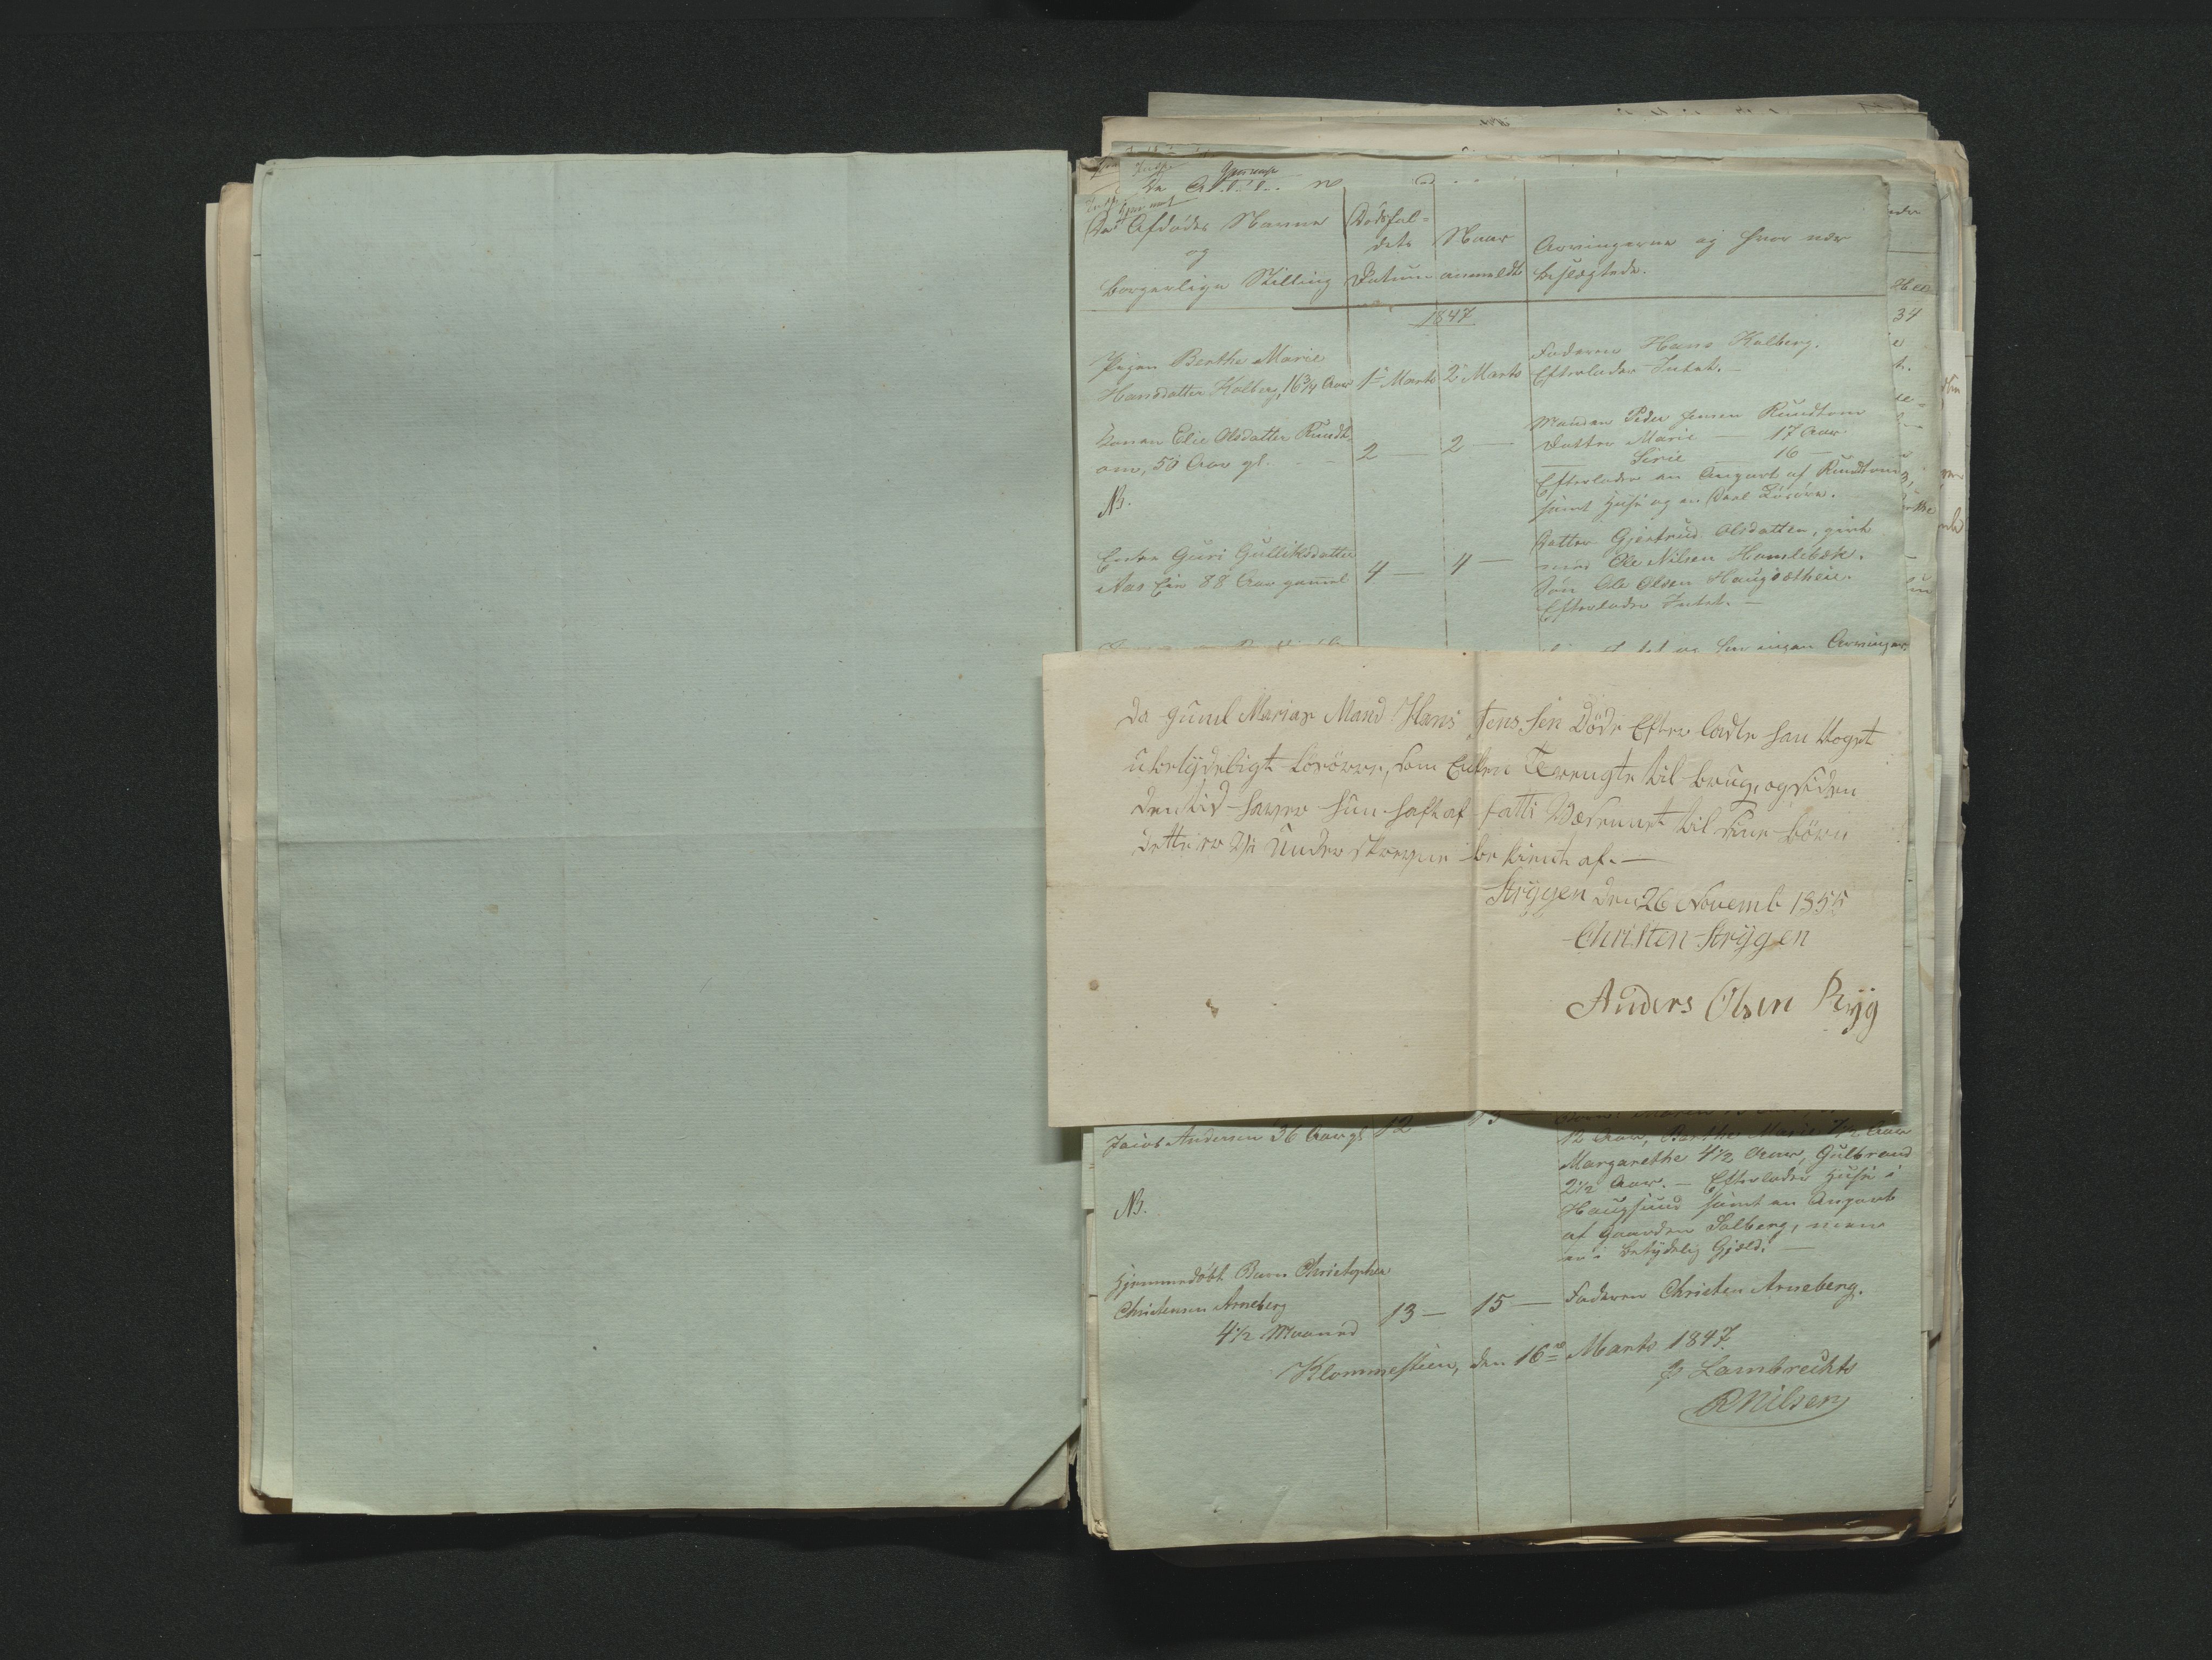 De Afdødes Navne
og
borgerlige Stilling
Dødsfal=
dets
Datum
Naar
anmeldt
Arvingerne og hvor nær
beslægtede.
1847
Pigen Berthe Marie
Hansdatter Kolberg, 16 3/4 Aar
1te Marts
2de Marts
Faderen Hans Kolberg.
Efterlader Intet. —
Konen Elie Olsdatter Rundt=
om, 50 Aar gl.
N.
2 —
2 —
Manden Peder Jensen Rundtom
Datter Marie — 17 Aar
Sirie — 16 —
Efterlader en Anpart af Rundtom
samt Huse og en Deel Løsøre.
Enken Guri Gulliksdatter
Aas Eie 88 Aar gammel
4 —
4 —
Datter Gjertrud Olsdatter, givt
med Ole Nilsen Hamlebæk.
Søn Ole Olsen Haugsætheie.
Efterlader Intet. —
og har ingen Arvinger
Da guml Marias Mand Hans Jens sen Døde Efter ladte han Noget
ubetydeligt Løsøvre, som Enken Terengte til brug, og siden
den tid haver hun haft af fatti Væsenet til sine børn
dette er Vi Under skrevne be kient af. —
Strygen den 26 Novemb 1855
Christen Strygen
Anders Olsen Ryg
Jacob Andersen 36 Aar gl
N.
12 —
12 Aar, Berthe Marie 7 1/2 Aar
Margarethe 4 1/2 Aar, Gulbrand
2 1/2 Aar. — Efterlader Huse i
Haugsund samt en Anpart
af Gaarden Solberg, men
er i betydelig Gjæld. —
Hjemmedøbt Barn Christopher
Christensen Arneberg
4 1/2 Maaned
13 —
15 —
Faderen Christen Arneberg.
Klommesteen, den 16de Marts 1847
p Lambrechts
R Nilsen